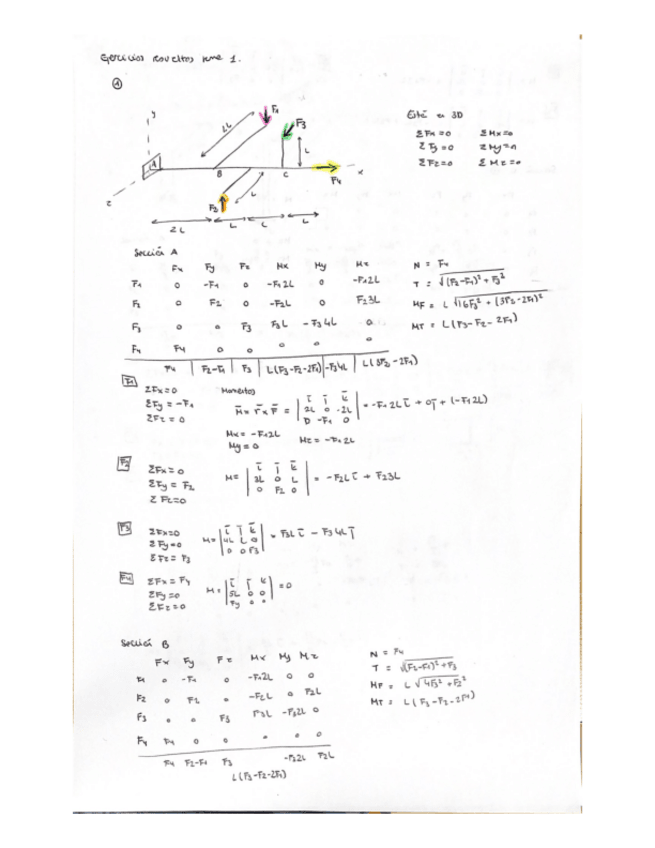 Ejercicios resueltos tema 1.
①
y
2L
F1
F3
L
A
B
C
x
F4
z
F2
L
2L L L L
Está en 3D
ΣFx=0 ΣMx=0
ΣFy=0 ΣMy=0
ΣFz=0 ΣMz=0
Sección A
Fx Fy Fz Mx My Mz
F1 0 -F1 0 -F1 2L 0 -F1 2L
F2 0 F2 0 -F2L 0 F2 3L
F3 0 0 F3 F3L -F3 4L 0
F4 F4 0 0 0 0 0
F4 F2-F1 F3 L(F3-F2-2F1) -F3 4L L(3F2-2F1)
N = F4
T = √(F2-F1)² + F3²
MF = L √16F3² + (3F2-2F1)²
MT = L(F3-F2-2F1)
F1
ΣFx=0
ΣFy = -F1
ΣFz = 0
Momentos
M = r x F = | i j k | = -F1 2L i + 0j + (-F1 2L)
2L 0 -2L
0 -F1 0
Mx = -F1 2L Mz = -F1 2L
My = 0
F2
ΣFx=0
ΣFy = F2
ΣFz=0
M = | i j k | = -F2L i + F2 3L
3L 0 L
0 F2 0
F3
ΣFx=0
ΣFy=0
ΣFz = F3
M = | i j k | = F3L i - F3 4L j
4L L 0
0 0 F3
F4
ΣFx = F4
ΣFy=0
ΣFz=0
M = | i j k | = 0
5L 0 0
F4 0 0
Sección B
Fx Fy Fz Mx My Mz
F1 0 -F1 0 -F1 2L 0 0
F2 0 F2 0 -F2L 0 F2L
F3 0 0 F3 F3L -F3 2L 0
F4 F4 0 0 0 0 0
F4 F2-F1 F3 -F3 2L F2L
L(F3-F2-2F1)
N = F4
T = √(F2-F1)² + F3
MF = L √4F3² + F2²
MT = L(F3-F2-2F1)